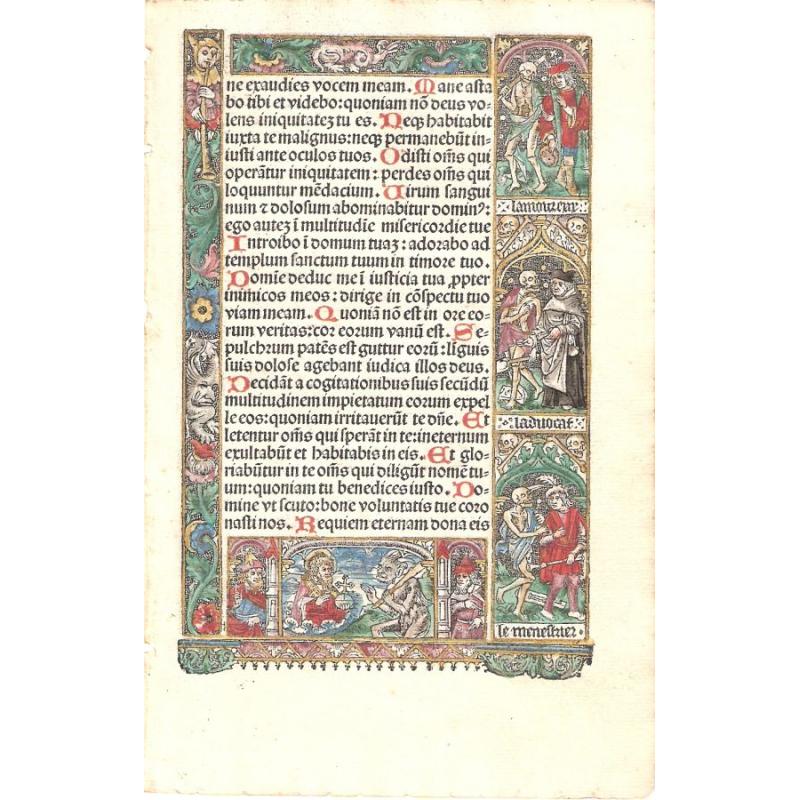 ne exaudies vocem meam. Mane asta
bo tibi et videbo: quoniam nō deus vo⸗
lens iniquitatez tu es. Neqȝ habitabit
iuxta te malignus: neqȝ permanebūt in⸗
iusti ante oculos tuos. Odisti om̄s qui
operātur iniquitatem: perdes om̄s qui
loquuntur mēdacium. Virum sangui
num ⁊ dolosum abominabitur dominꝰ:
ego autez ī multitudīe misericordie tue
Introibo ī domum tuaz: adorabo ad
templum sanctum tuum in timore tuo.
Domīe deduc me ī iusticia tua ꝓpter
inimicos meos: dirige in cōspectu tuo
viam meam. Quoniā nō est in ore eo⸗
rum veritas: cor eorum vanū est. Se⸗
pulchrum patēs est guttur eorū: līguis
suis dolose agebant iudica illos deus.
Decidāt a cogitationibus suis secūdū
multitudinem impietatum eorum expel
le eos: quoniam irritauerūt te dn̄e. Et
letentur om̄s qui sperāt in te: in eternum
exultabūt et habitabis in eis. Et glo⸗
riabūtur in te om̄s qui diligūt nomē tu⸗
um: quoniam tu benedices iusto. Do⸗
mine vt scuto: bone voluntatis tue coro
nasti nos. Requiem eternam dona eis
laduocat
le menestrier